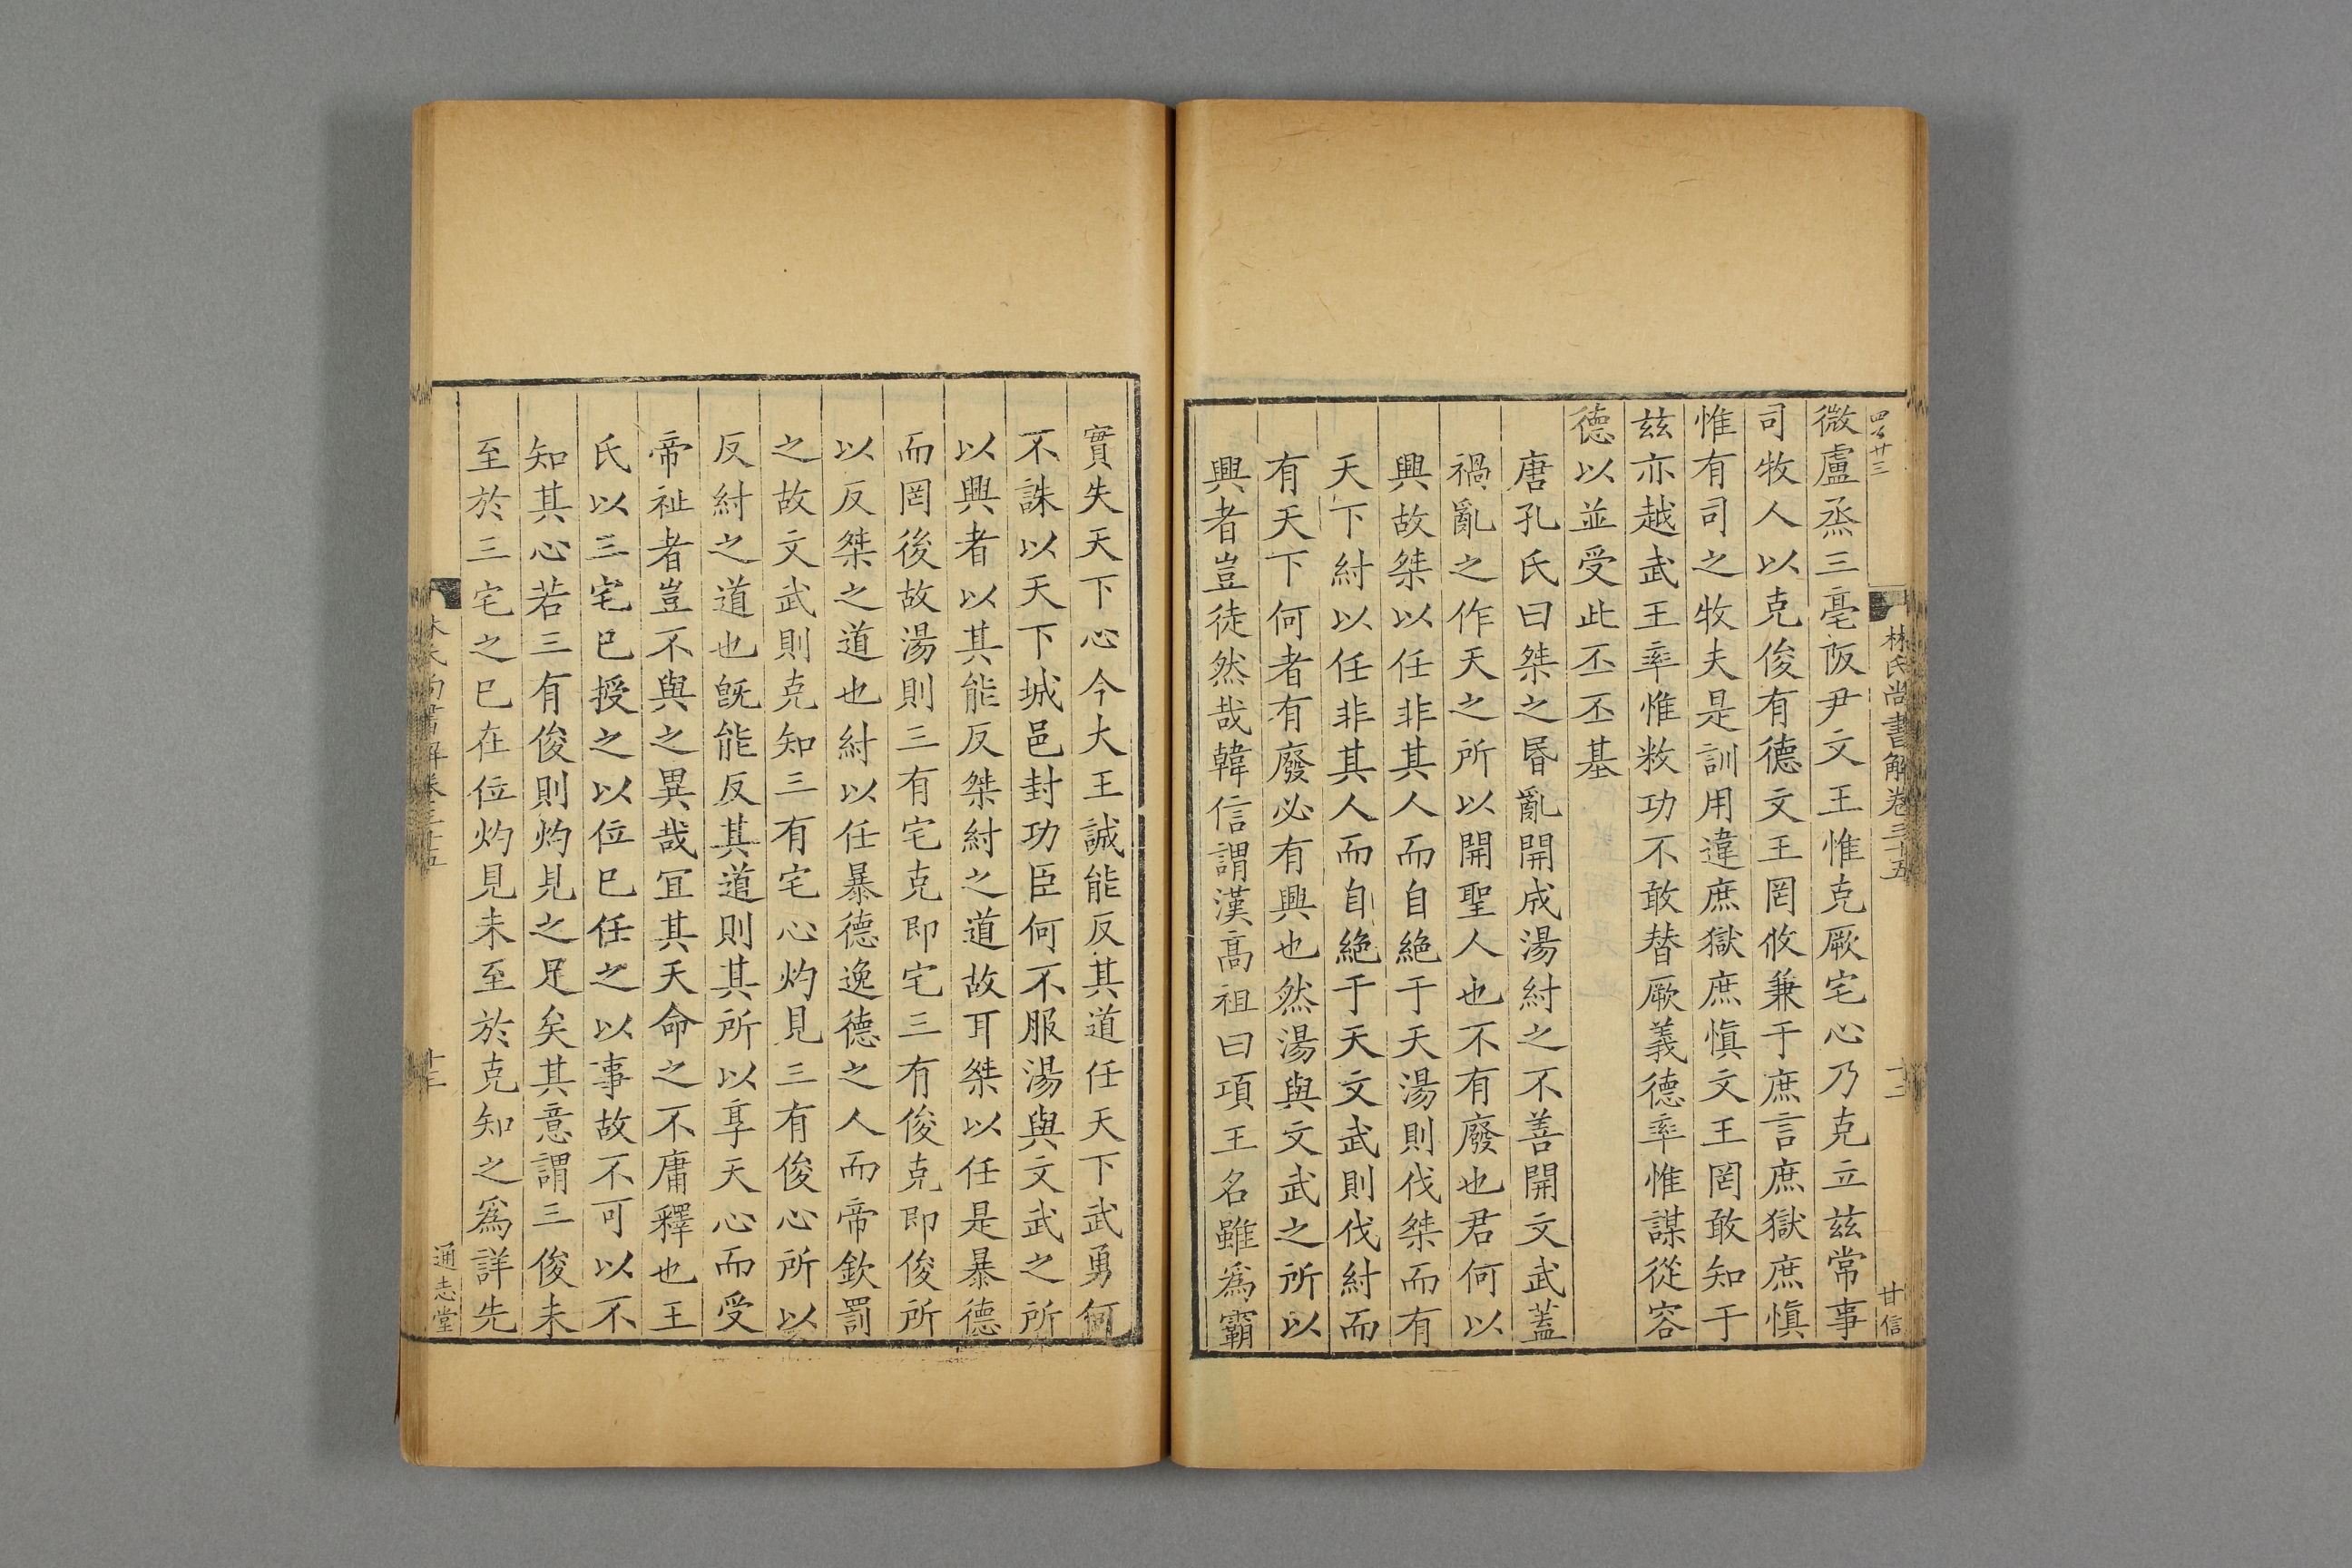 四百廿三
林氏尚書解卷三十五
十二
甘信
微盧烝三亳阪尹文王惟克厥宅心乃克立茲常事
司牧人以克俊有德文王罔攸兼于庶言庶獄庶慎
惟有司之牧夫是訓用違庶獄庶慎文王罔敢知于
茲亦越武王率惟敉功不敢替厥義德率惟謀從容
德以並受此丕丕基
唐孔氏曰桀之昬亂開成湯紂之不善開文武蓋
禍亂之作天之所以開聖人也不有廢也君何以
興故桀以任非其人而自絕于天湯則伐桀而有
天下紂以任非其人而自絕于天文武則伐紂而
有天下何者有廢必有興也然湯與文武之所以
興者豈徒然哉韓信謂漢高祖曰項王名雖為霸
實失天下心今大王誠能反其道任天下武勇何
不誅以天下城邑封功臣何不服湯與文武之所
以興者以其能反桀紂之道故耳桀以任是暴德
而罔後故湯則三有宅克即宅三有俊克即俊所
以反桀之道也紂以任暴德逸德之人而帝欽罰
之故文武則克知三有宅心灼見三有俊心所以
反紂之道也既能反其道則其所以享天心而受
帝祉者豈不與之異哉宜其天命之不庸釋也王
氏以三宅已授之以位已任之以事故不可以不
知其心若三有俊則灼見之足矣其意謂三俊未
至於三宅之已在位灼見未至於克知之為詳先
十二
通志堂